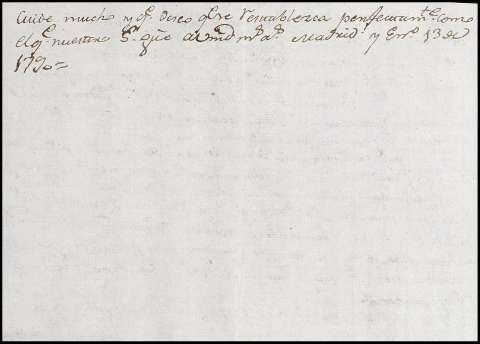 Cuide mucho y q.e deseo q.e se Restablezca perfectam.te como
el q.e nuestro S.or gûe a vmd m.s a.s Madrid y En.o 13 de
1790=